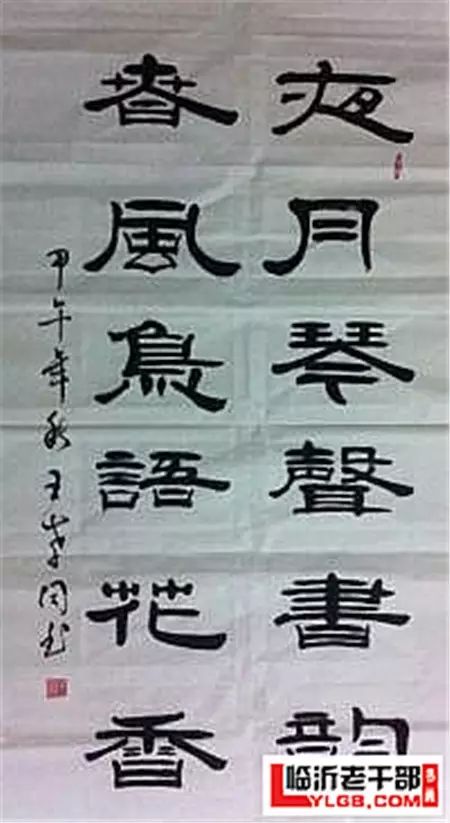 夜月琴聲書韵
春風鳥語花香
甲午年秋王孝同书
临沂老干部
LYLGB.COM